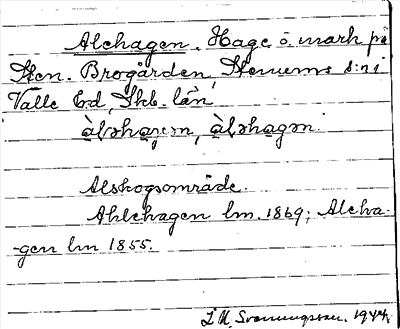 Alehagen. Hage o. mark på
Sten. Brogården, Stenums s:n i
Valle hd, Skb. län
àləhaɡən, àləhaɡən.
Alskogsområde.
Ahlehagen lm. 1869; Aleha-
-gen lm 1855.
Svenungsson. 1944